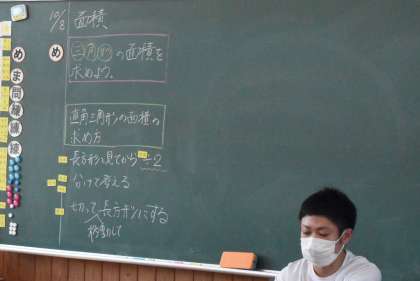 10/8 面積
め 三角形の面積を
求めよう。
直角三角形の面積の
求め方
長方形と見てから÷2
分けて考える
切って長方形にする
移動して
め
ま
問
練